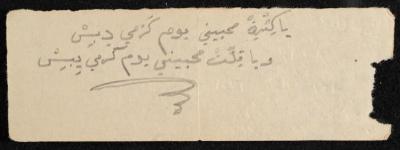 يا كِثْرِةْ محبيني يوم كَرْمي دِبِسْ
ويا قِلّتْ محبيني يوم كَرْمي يِبِسْ